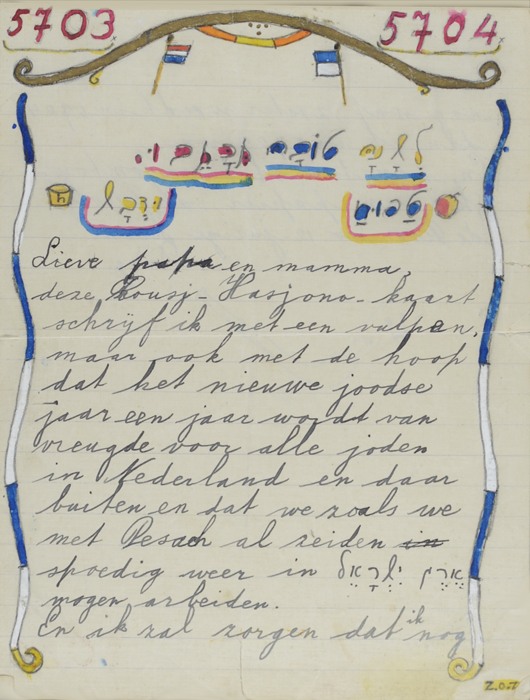 5703 5704
לשנה טובה
Lieve papa en mamma,
deze Rousj-Hasjono-kaart
schrijf ik met een vulpen,
maar ook met de hoop
dat het nieuwe joodse
jaar een jaar wordt van
vreugde voor alle joden
in Nederland en daar
buiten en dat we zoals we
met Pesach al zeiden in
spoedig weer in אֶרֶץ יִשְׂרָאֵל
mogen arbeiden.
En ik zal zorgen dat ik nog
z.o.z